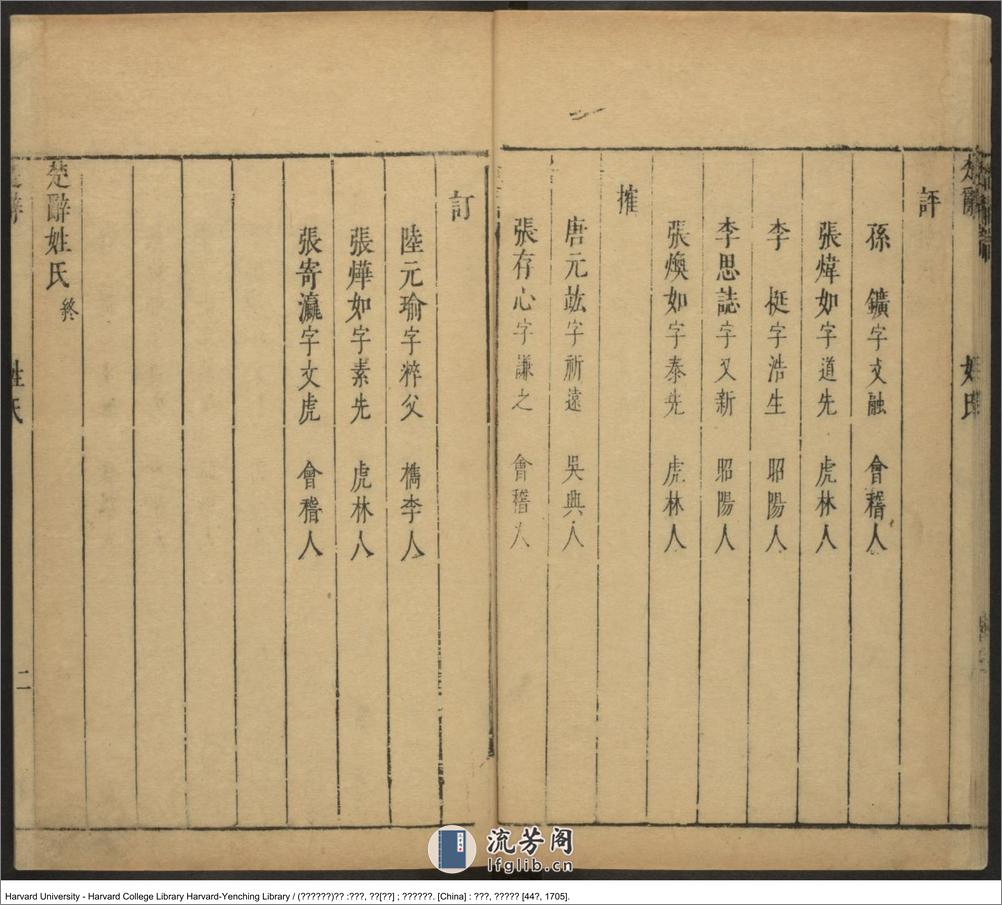 楚辭
姓氏
評
孫 鑛字文融 會稽人
張煒如字道先 虎林人
李 梃字浩生 昭陽人
李思誌字又新 昭陽人
張煥如字泰先 虎林人
摧
唐元竑字祈遠 吳興人
張存心字謙之 會稽人
訂
陸元瑜字粹父 檇李人
張燁如字素先 虎林人
張寄瀛字文虎 會稽人
楚辭姓氏終
姓氏
二
流芳阁
lfglib.cn
Harvard University - Harvard College Library Harvard-Yenching Library / (??????)?? :???, ??[??] ; ??????. [China] : ???, ????? [44?, 1705].